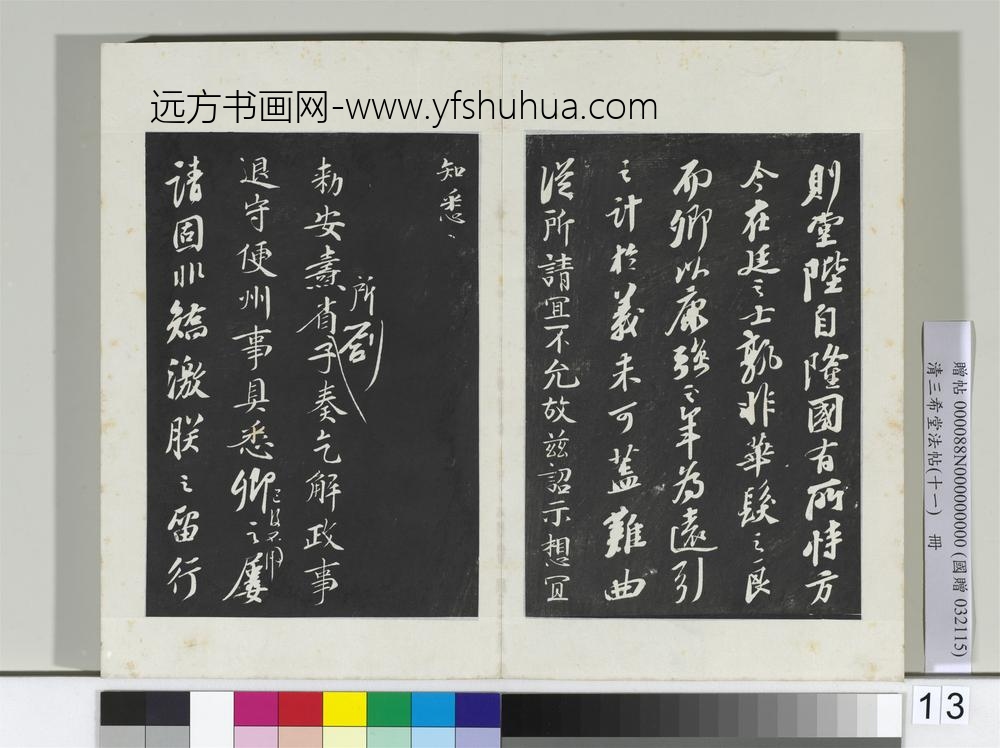 远方书画网-www.yfshuhua.com
則堂陛自隆國有所恃方
今在廷之士孰非華髮之良
而卿以康強之年為遠引
之計於義未可蓋難曲
從所請宜不允故茲詔示想宜
知悉
所劄
勅安燾省子奏乞解政事
退守便州事具悉卿之屢
請固非矯激朕之留行
贈帖 000088N000000000 (國贈 032115)
清三希堂法帖(十一) 冊
13